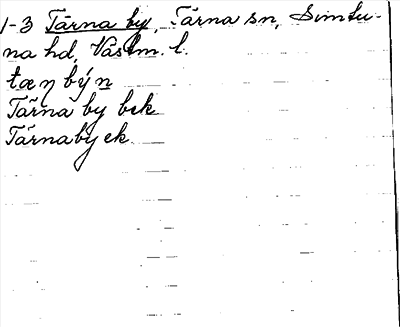 1-3 Tärna by, Tärna sn, Simtu-
na hd, Västm. l.
tæɳ býn
Tärna by bek
Tärnaby ek